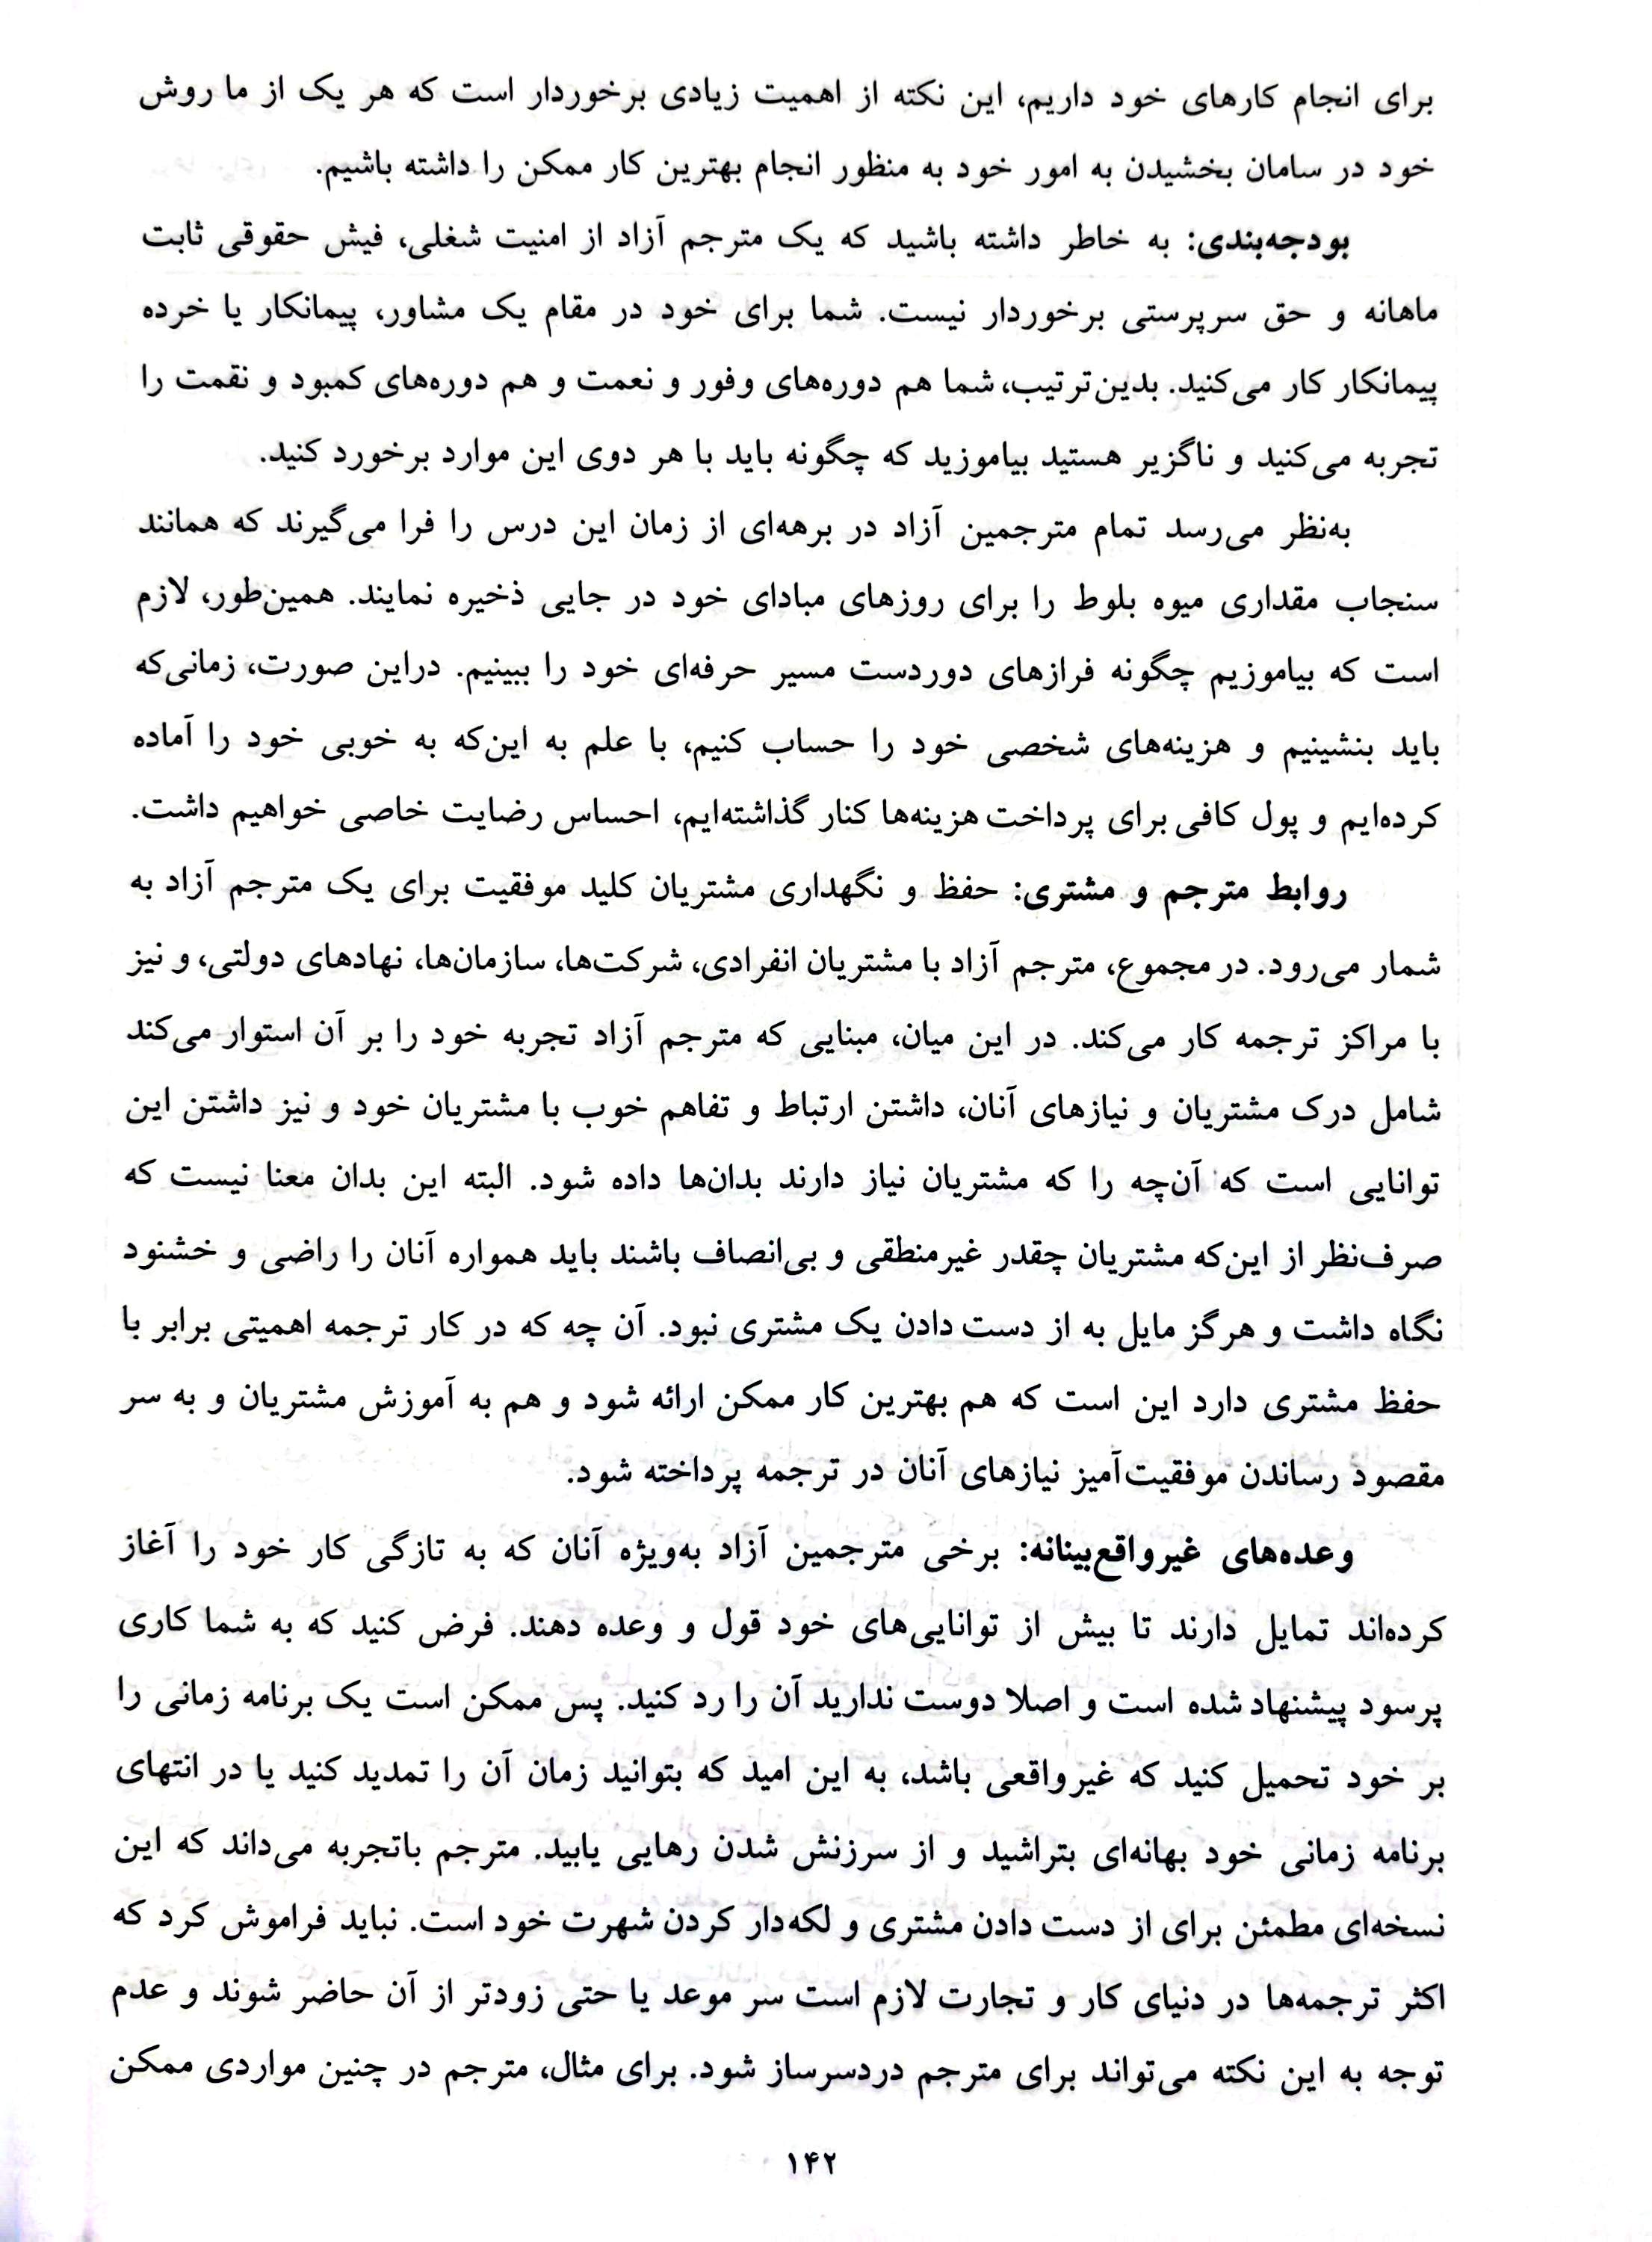 برای انجام کارهای خود داریم، این نکته از اهمیت زیادی برخوردار است که هر یک از ما روش
خود در سامان بخشیدن به امور خود به منظور انجام بهترین کار ممکن را داشته باشیم.
بودجه‌بندی: به خاطر داشته باشید که یک مترجم آزاد از امنیت شغلی، فیش حقوقی ثابت
ماهانه و حق سرپرستی برخوردار نیست. شما برای خود در مقام یک مشاور، پیمانکار یا خرده
پیمانکار کار می‌کنید. بدین‌ترتیب، شما هم دوره‌های وفور و نعمت و هم دوره‌های کمبود و نقمت را
تجربه می‌کنید و ناگزیر هستید بیاموزید که چگونه باید با هر دوی این موارد برخورد کنید.
به‌نظر می‌رسد تمام مترجمین آزاد در برهه‌ای از زمان این درس را فرا می‌گیرند که همانند
سنجاب مقداری میوه بلوط را برای روزهای مبادای خود در جایی ذخیره نمایند. همین‌طور، لازم
است که بیاموزیم چگونه فرازهای دوردست مسیر حرفه‌ای خود را ببینیم. دراین صورت، زمانی‌که
باید بنشینیم و هزینه‌های شخصی خود را حساب کنیم، با علم به این‌که به خوبی خود را آماده
کرده‌ایم و پول کافی برای پرداخت هزینه‌ها کنار گذاشته‌ایم، احساس رضایت خاصی خواهیم داشت.
روابط مترجم و مشتری: حفظ و نگهداری مشتریان کلید موفقیت برای یک مترجم آزاد به
شمار می‌رود. در مجموع، مترجم آزاد با مشتریان انفرادی، شرکت‌ها، سازمان‌ها، نهادهای دولتی، و نیز
با مراکز ترجمه کار می‌کند. در این میان، مبنایی که مترجم آزاد تجربه خود را بر آن استوار می‌کند
شامل درک مشتریان و نیازهای آنان، داشتن ارتباط و تفاهم خوب با مشتریان خود و نیز داشتن این
توانایی است که آن‌چه را که مشتریان نیاز دارند بدان‌ها داده شود. البته این بدان معنا نیست که
صرف‌نظر از این‌که مشتریان چقدر غیرمنطقی و بی‌انصاف باشند باید همواره آنان را راضی و خشنود
نگاه داشت و هرگز مایل به از دست دادن یک مشتری نبود. آن چه که در کار ترجمه اهمیتی برابر با
حفظ مشتری دارد این است که هم بهترین کار ممکن ارائه شود و هم به آموزش مشتریان و به سر
مقصود رساندن موفقیت‌آمیز نیازهای آنان در ترجمه پرداخته شود.
وعده‌های غیرواقع‌بینانه: برخی مترجمین آزاد به‌ویژه آنان که به تازگی کار خود را آغاز
کرده‌اند تمایل دارند تا بیش از توانایی‌های خود قول و وعده دهند. فرض کنید که به شما کاری
پرسود پیشنهاد شده است و اصلا دوست ندارید آن را رد کنید. پس ممکن است یک برنامه زمانی را
بر خود تحمیل کنید که غیرواقعی باشد، به این امید که بتوانید زمان آن را تمدید کنید یا در انتهای
برنامه زمانی خود بهانه‌ای بتراشید و از سرزنش شدن رهایی یابید. مترجم باتجربه می‌داند که این
نسخه‌ای مطمئن برای از دست دادن مشتری و لکه‌دار کردن شهرت خود است. نباید فراموش کرد که
اکثر ترجمه‌ها در دنیای کار و تجارت لازم است سر موعد یا حتی زودتر از آن حاضر شوند و عدم
توجه به این نکته می‌تواند برای مترجم دردسرساز شود. برای مثال، مترجم در چنین مواردی ممکن
۱۴۲